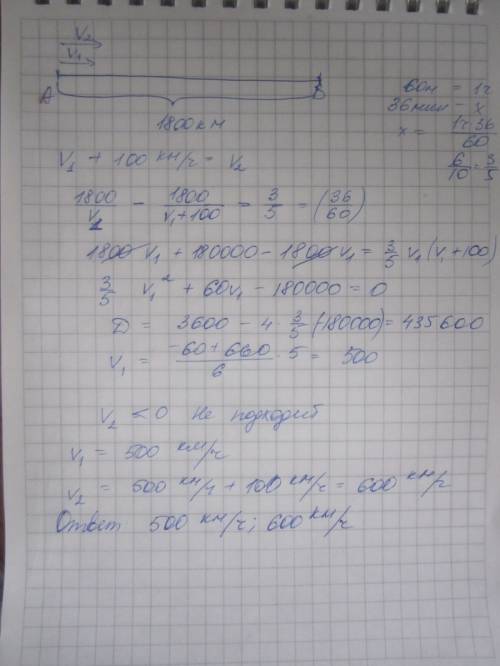 V₂
V₁
A B
1800 км
60м = 1ч
36мин - x
x = 1ч·36/60
6/10 = 3/5
V₁ + 100 км/ч = V₂
1800/V₁ - 1800/(V₁+100) = 3/5 = (36/60)
1800 V₁ + 180000 - 1800 V₁ = 3/5 V₁ (V₁+100)
3/5 V₁² + 60V₁ - 180000 = 0
D = 3600 - 4 3/5 (-180000) = 435600
V₁ = (-60+660)/6 · 5 = 500
V₂ < 0 Не подходит
V₁ = 500 км/ч
V₂ = 500 км/ч + 100 км/ч = 600 км/ч
Ответ 500 км/ч; 600 км/ч